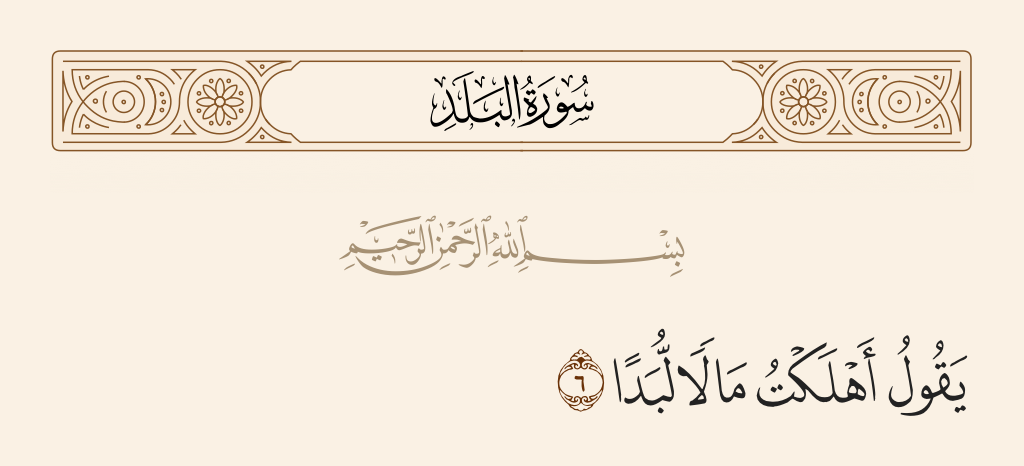 سُورَةُ البَلَدِ
بِسْمِ ٱللَّهِ ٱلرَّحْمَٰنِ ٱلرَّحِيمِ
يَقُولُ أَهْلَكْتُ مَالًا لُّبَدًا ٦